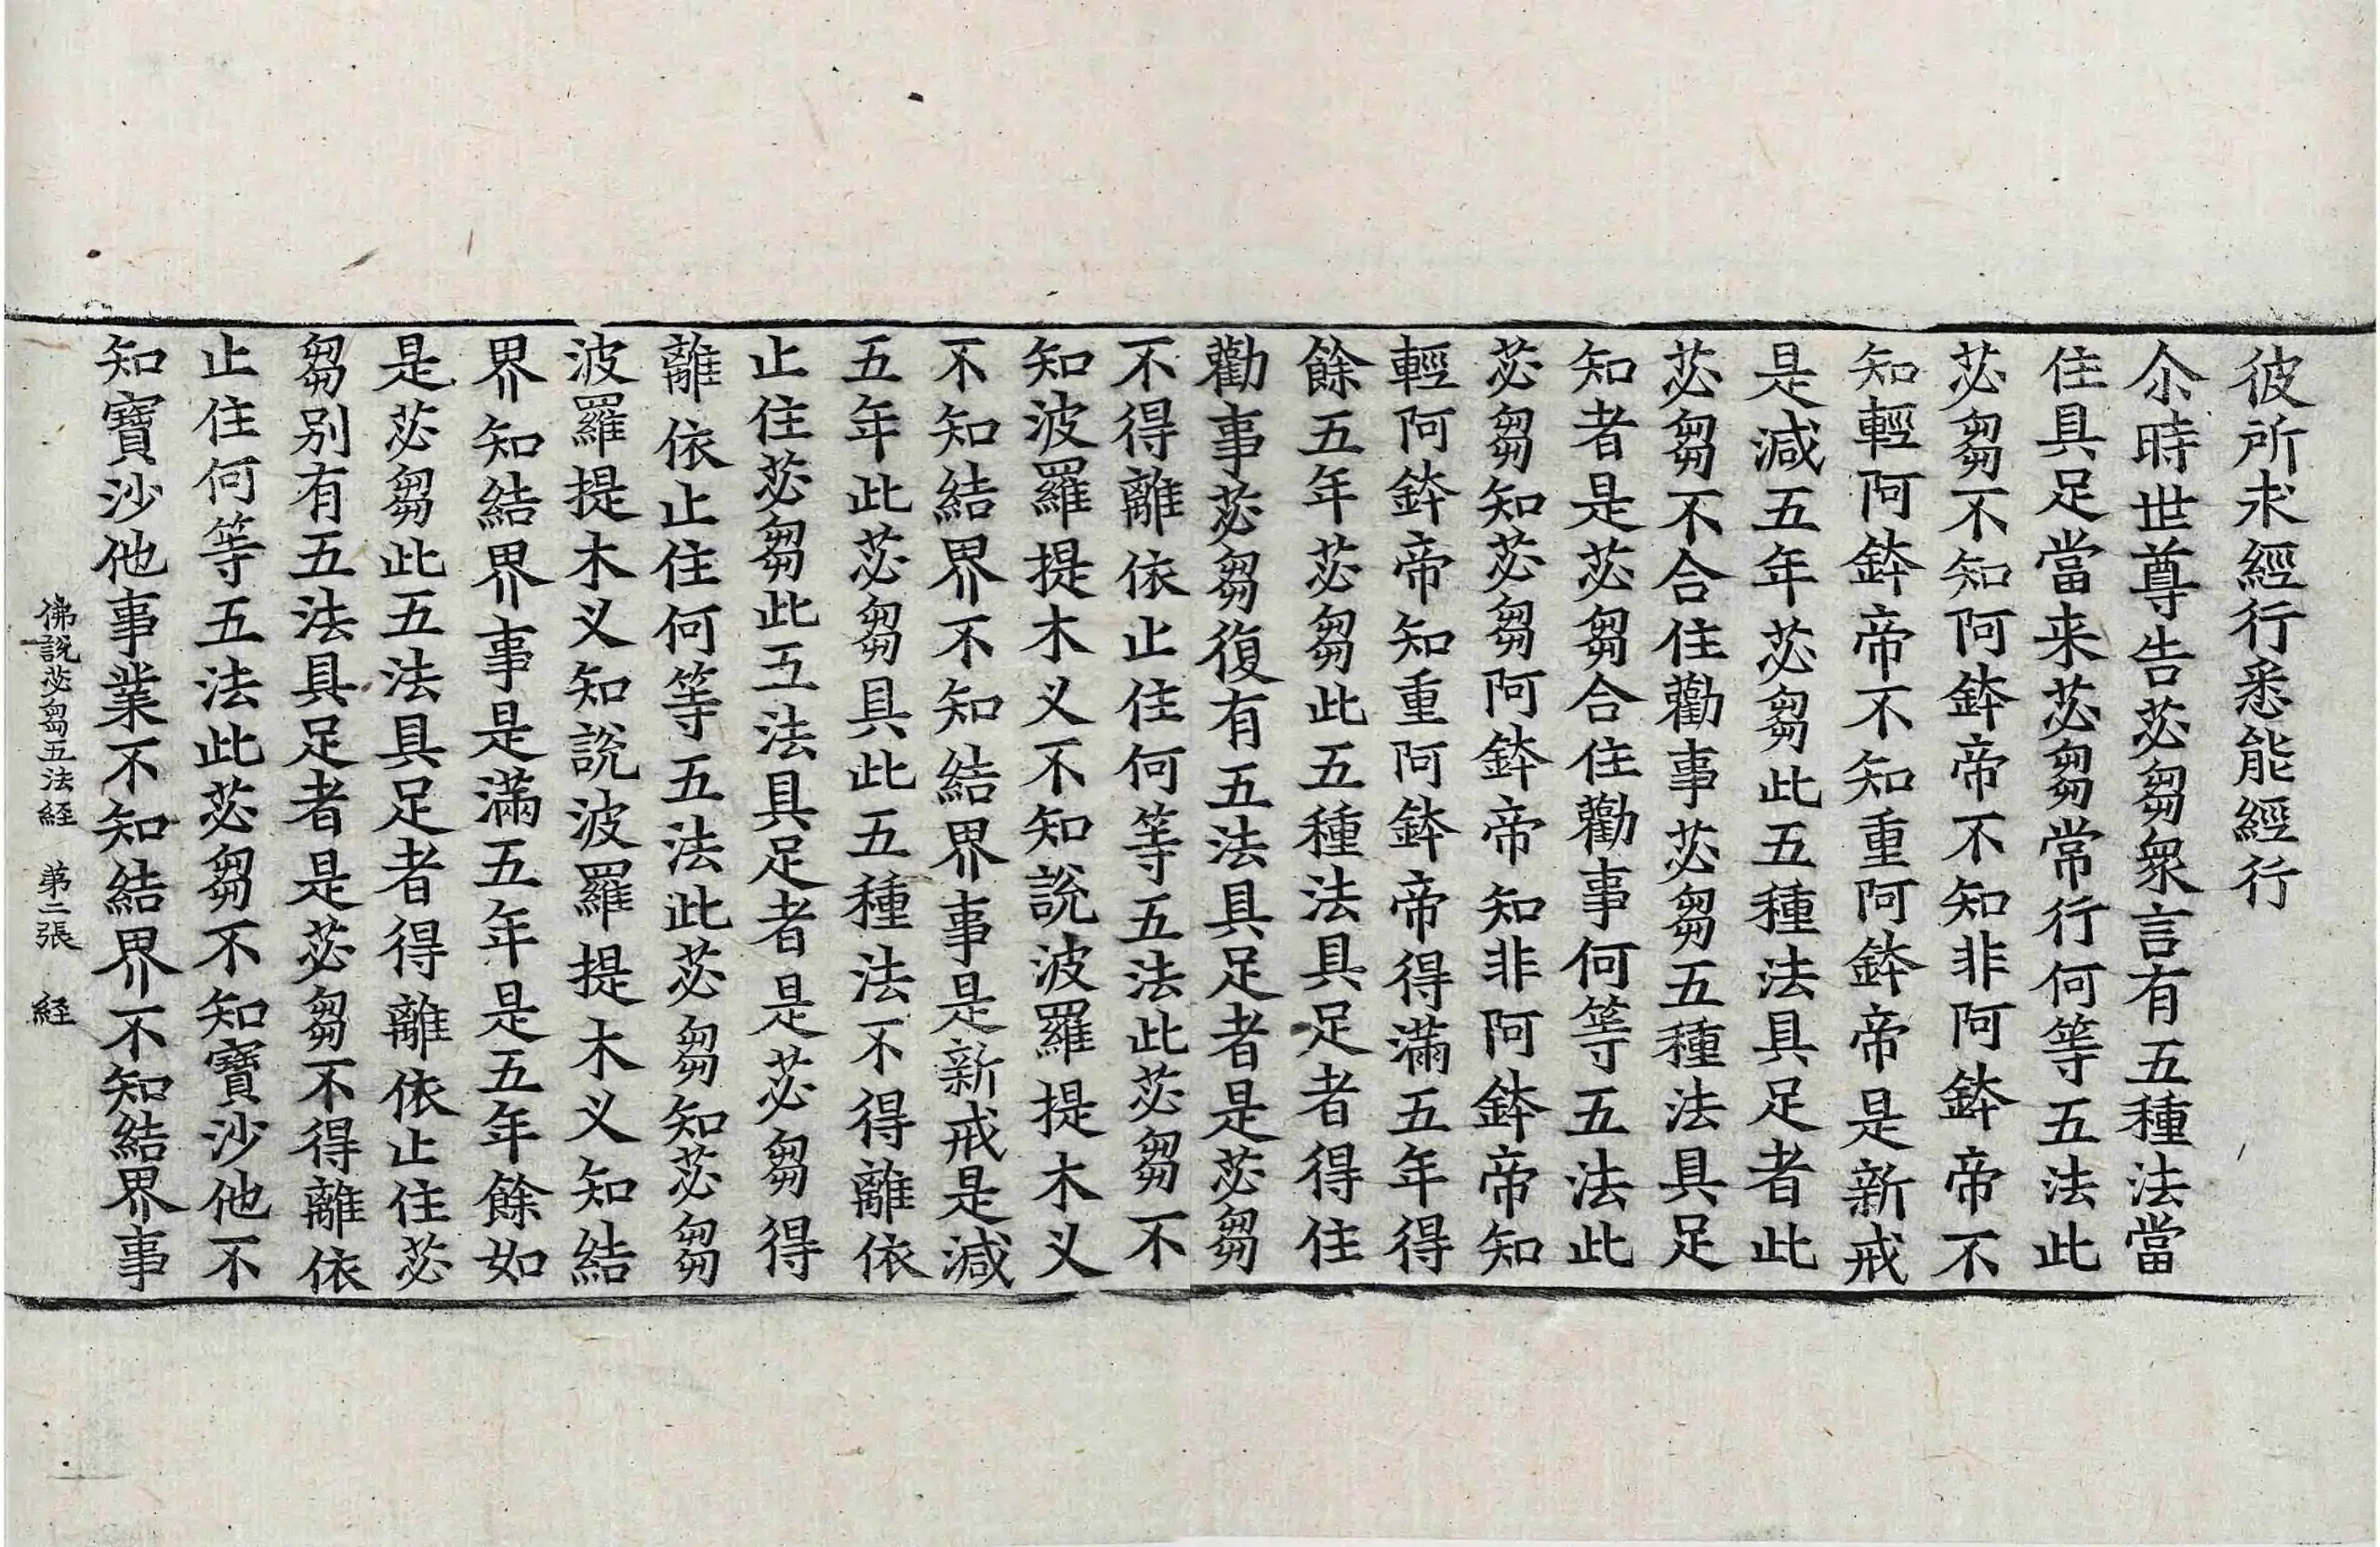 彼所求經行悉能經行
尒時世尊告苾芻衆言有五種法當
住具足當来苾芻常行何等五法此
苾芻不知阿鉢帝不知非阿鉢帝不
知輕阿鉢帝不知重阿鉢帝是新戒
是減五年苾芻此五種法具足者此
苾芻不合住勸事苾芻五種法具足
知者是苾芻合住勸事何等五法此
苾芻知苾芻阿鉢帝知非阿鉢帝知
輕阿鉢帝知重阿鉢帝得滿五年得
餘五年苾芻此五種法具足者得住
勸事苾芻復有五法具足者是苾芻
不得離依止住何等五法此苾芻不
知波羅提木义不知說波羅提木义
不知結界不知結界事是新戒是減
五年此苾芻具此五種法不得離依
止住苾芻此五法具足者是苾芻得
離依止住何等五法此苾芻知苾芻
波羅提木义知說波羅提木义知結
界知結界事是滿五年是五年餘如
是苾芻此五法具足者得離依止住苾
芻別有五法具足者是苾芻不得離依
止住何等五法此苾芻不知寶沙他不
知寶沙他事業不知結界不知結界事
佛說苾芻五法経 第二張 経